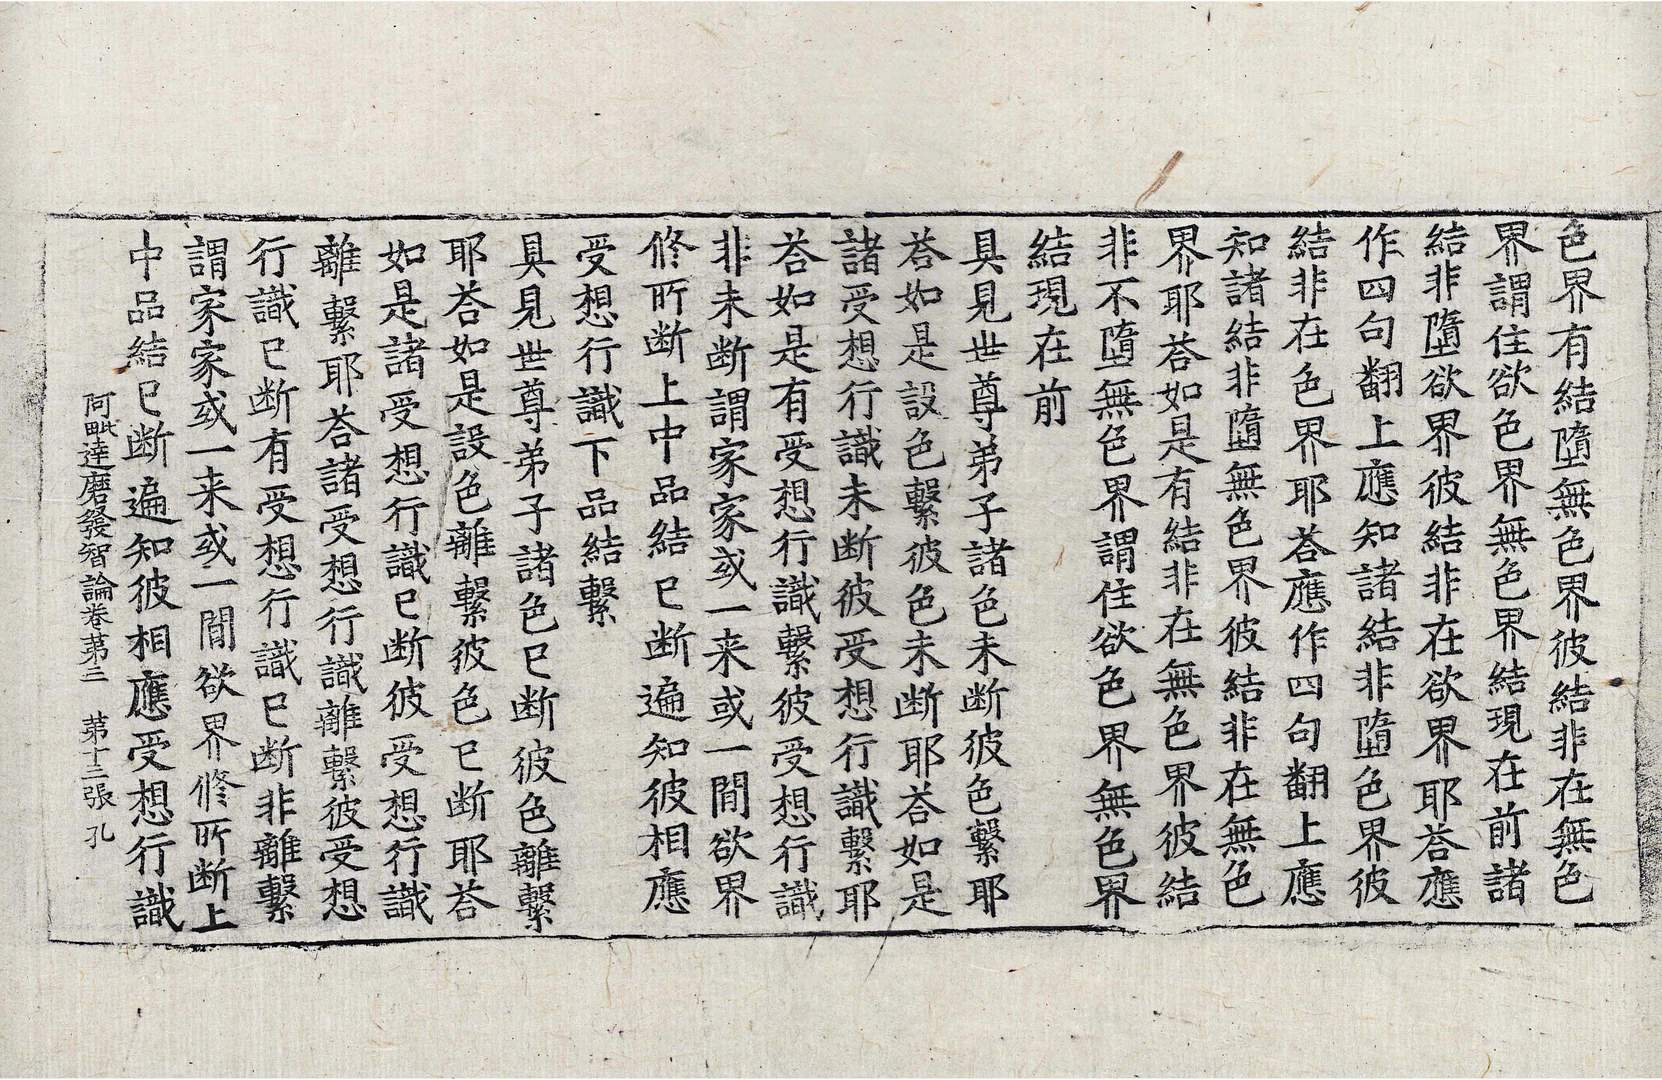 色界有結墮無色界彼結非在無色
界謂住欲色界無色界結現在前諸
結非墮欲界彼結非在欲界耶荅應
作四句翻上應知諸結非墮色界彼
結非在色界耶荅應作四句翻上應
知諸結非墮無色界彼結非在無色
界耶荅如是有結非在無色界彼結
非不墮無色界謂住欲色界無色界
結現在前
具見世尊弟子諸色未断彼色繫耶
荅如是設色繫彼色未断耶荅如是
諸受想行識未断彼受想行識繫耶
荅如是有受想行識繫彼受想行識
非未断謂家家或一来或一間欲界
修所断上中品結已断遍知彼相應
受想行識下品結繫
具見世尊弟子諸色已断彼色離繫
耶荅如是設色離繫彼色已断耶荅
如是諸受想行識已断彼受想行識
離繫耶荅諸受想行識離繫彼受想
行識已断有受想行識已断非離繫
謂家家或一来或一間欲界修所断上
中品結已断遍知彼相應受想行識
阿毗達磨發智論卷第三 第十三張 孔